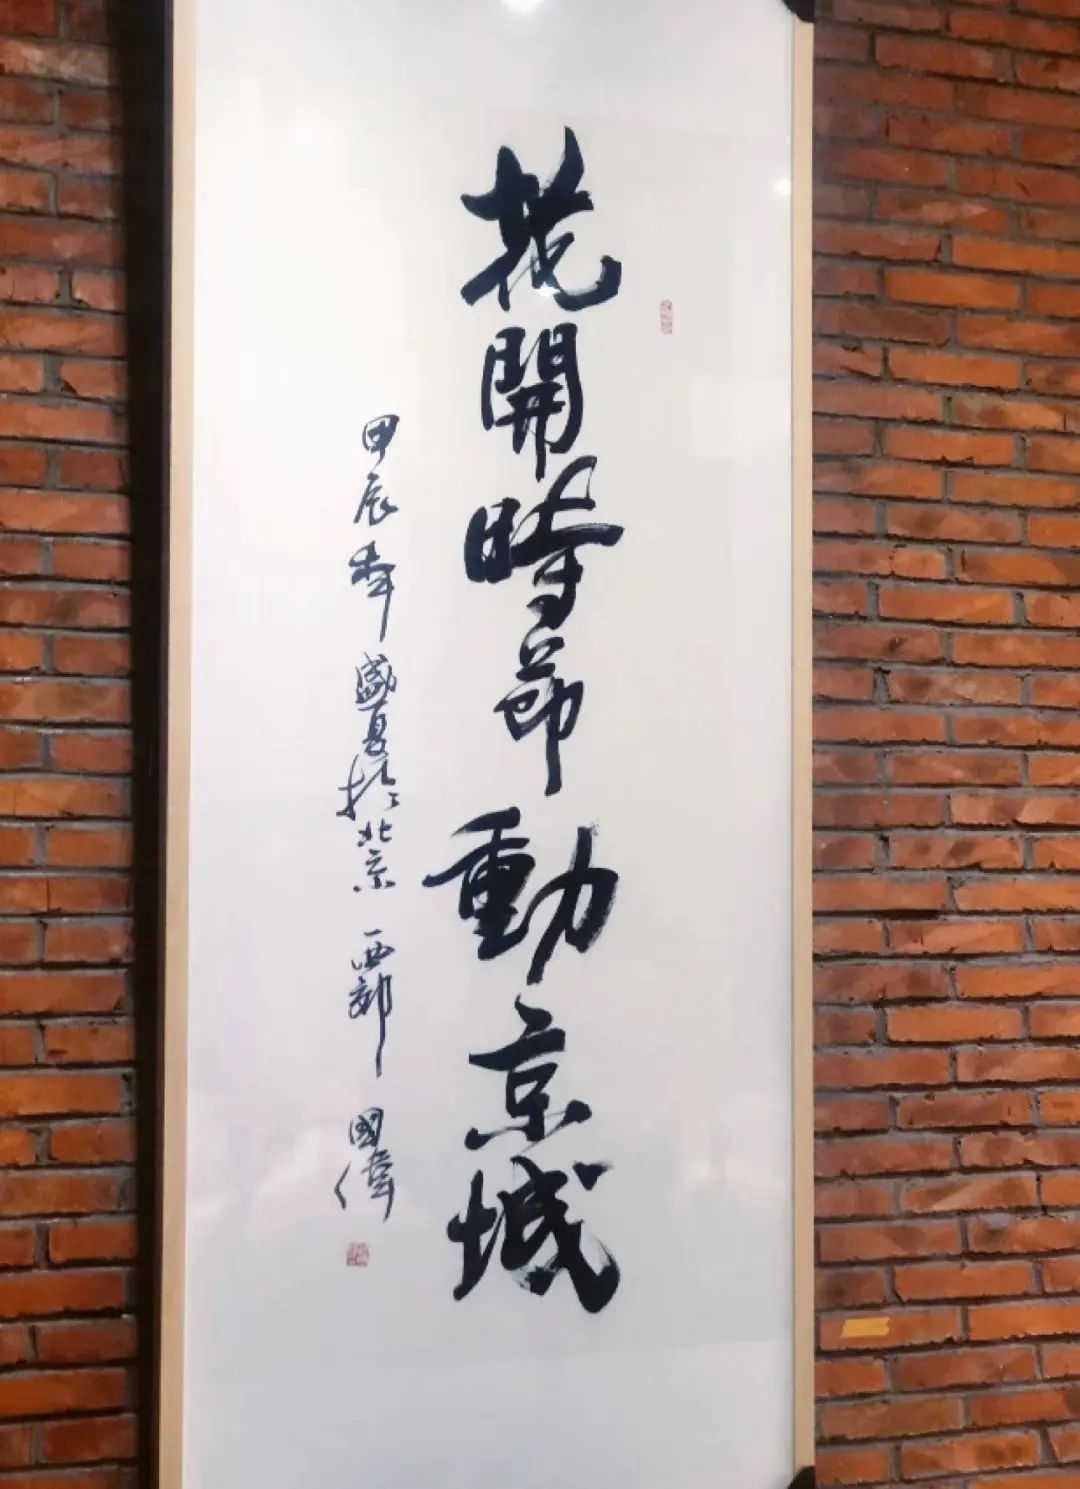 花開時節動京城
甲辰年盛夏於北京西郊國偉